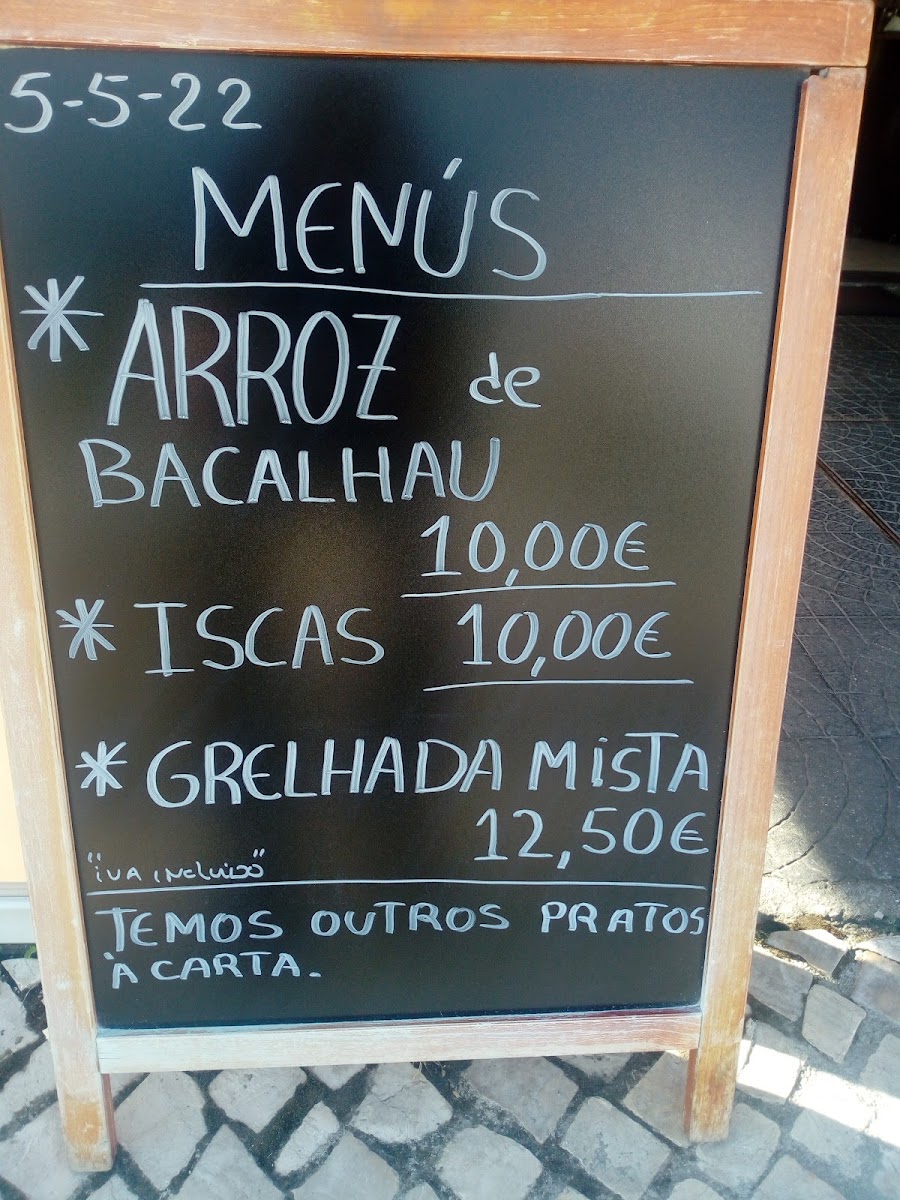 5-5-22
MENÚS
* ARROZ de
BACALHAU
10,00€
* ISCAS 10,00€
* GRELHADA MiSTA
12,50€
"iVA iNCLUiDO"
TEMOS OUTROS PRATOS
À CARTA.